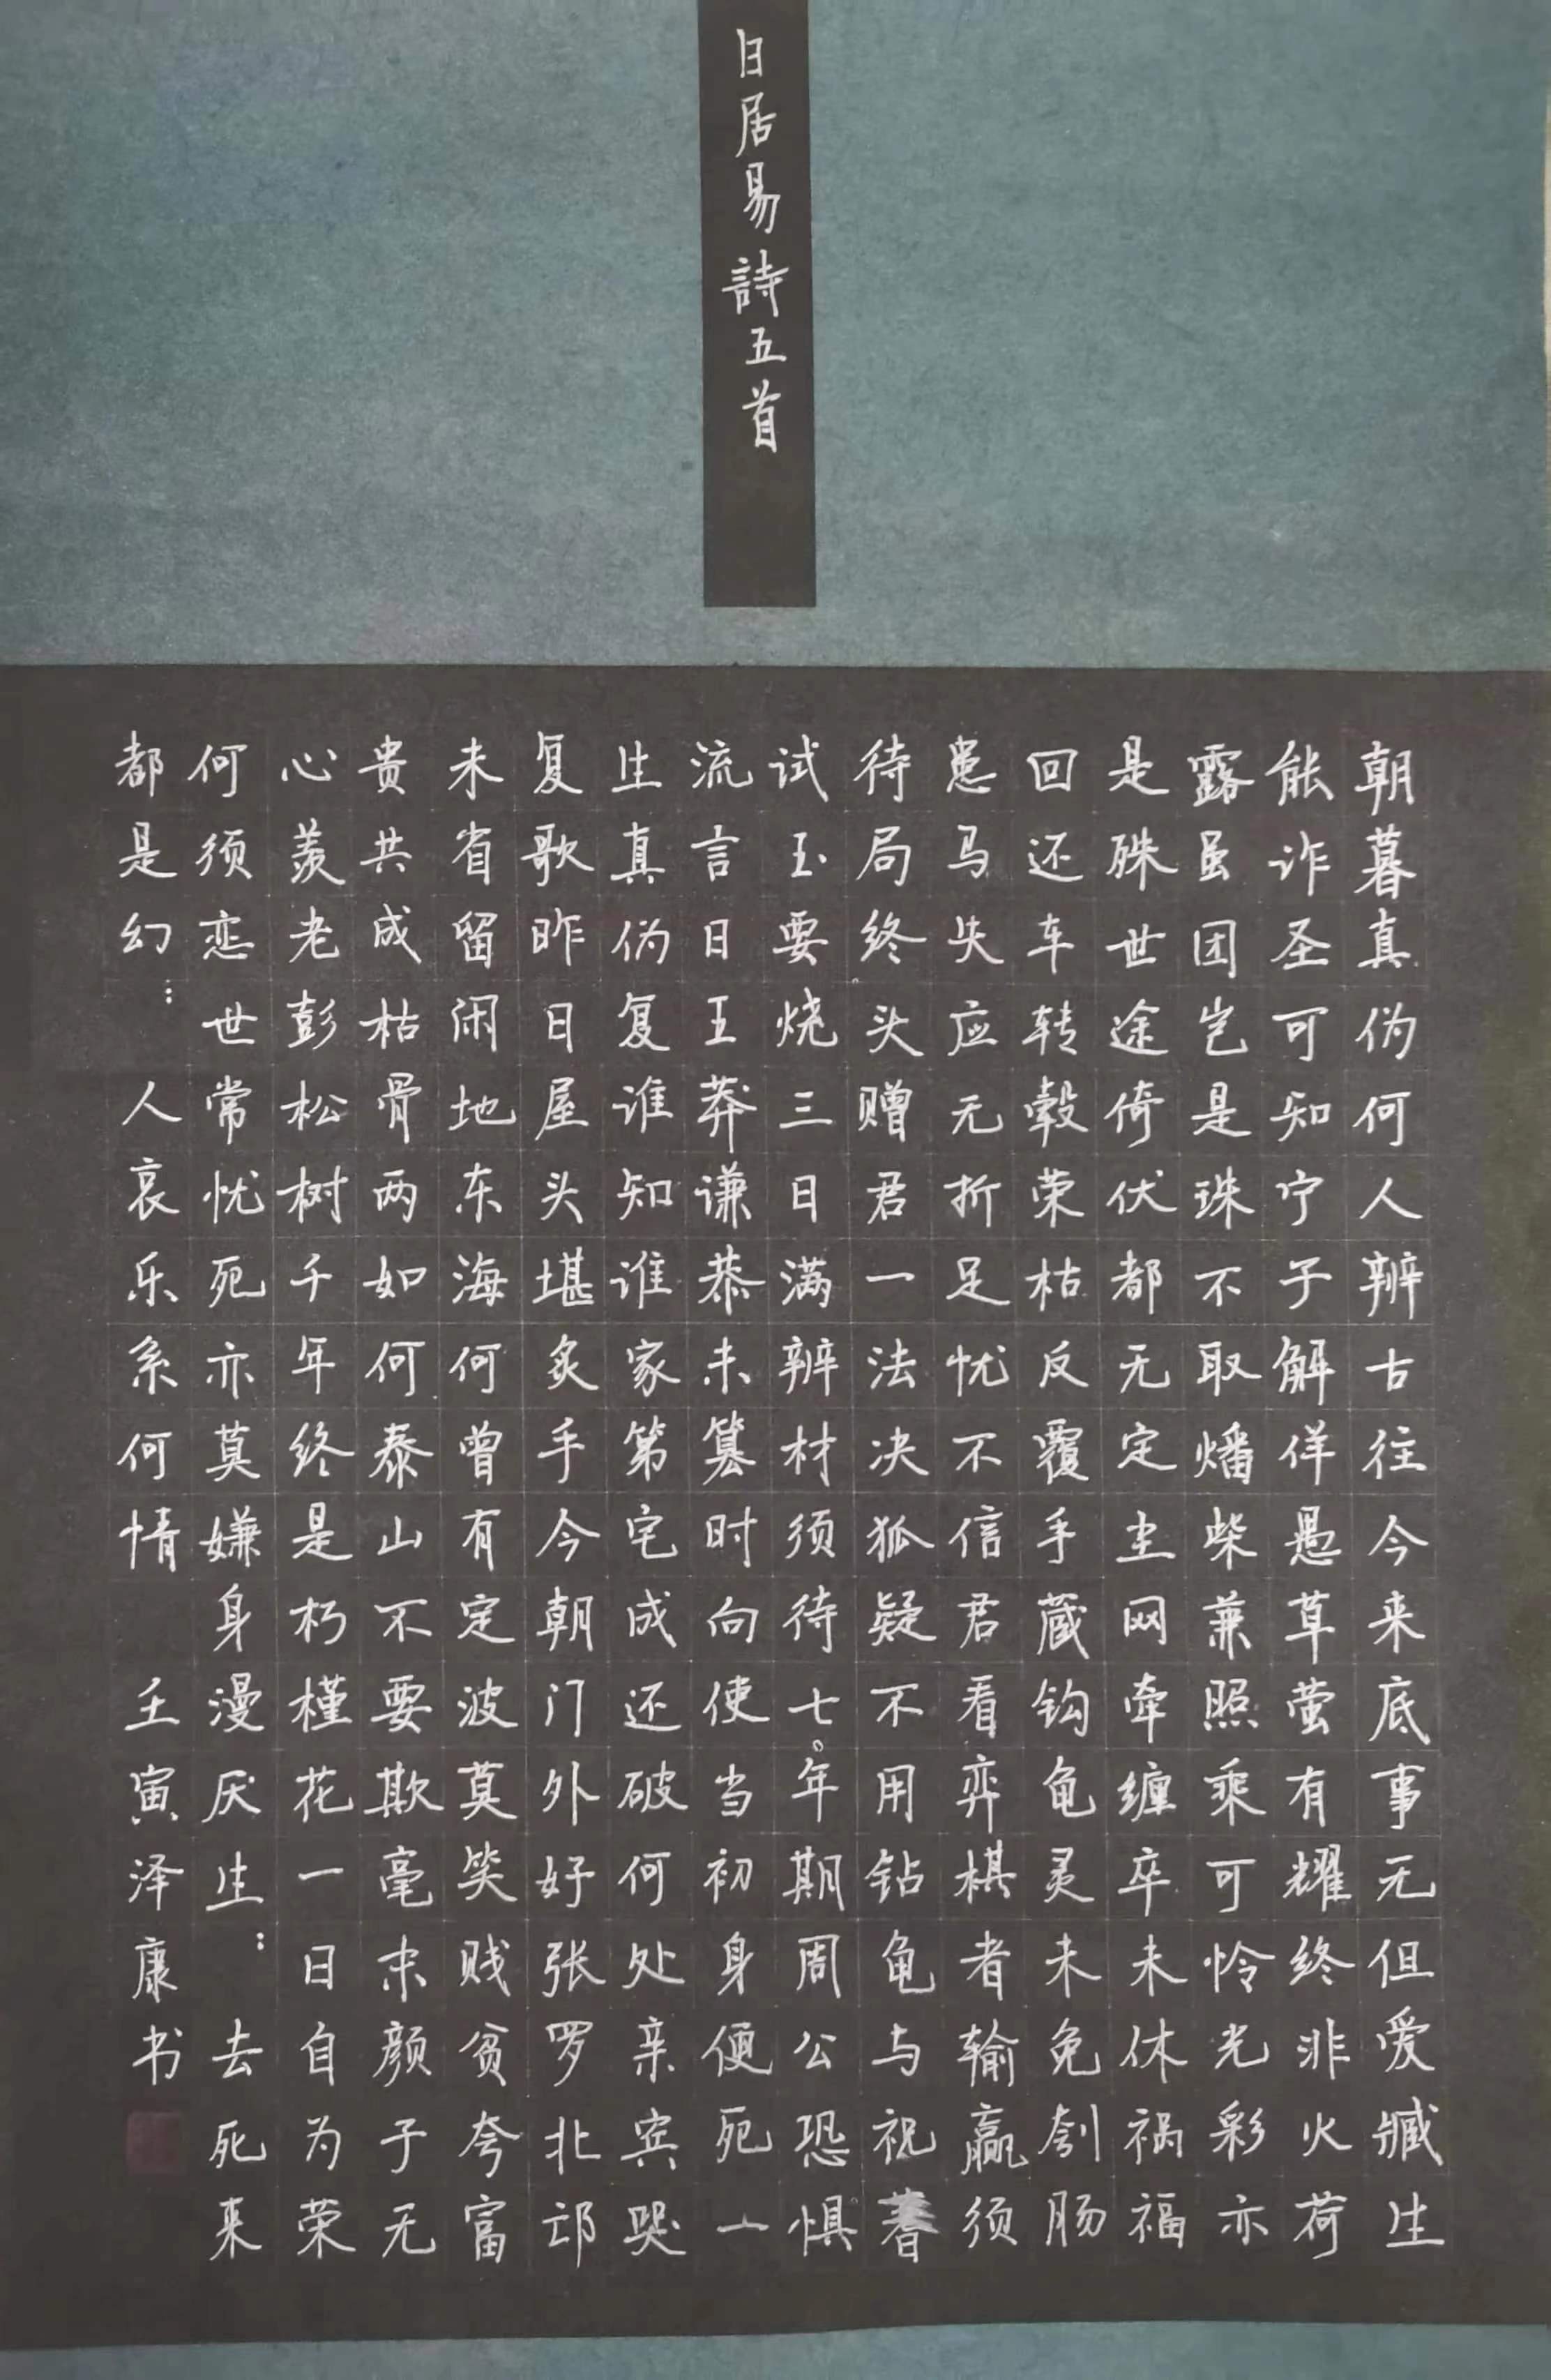 白居易詩五首
朝暮真伪何人辨古往今来底事无但爱臧生
能诈圣可知宁子解佯愚草萤有耀终非火荷
露虽团岂是珠不取燔柴兼照乘可怜光彩亦
是殊世途倚伏都无定尘网牵缠卒未休祸福
回还车转毂荣枯反覆手藏钩龟灵未免刳肠
患马失应无折足忧不信君看弈棋者输赢须
待局终。头赠君一法决狐疑不用钻龟与祝蓍
试玉要烧三日满辨材须待七。年期周公恐惧
流言日王莽谦恭未篡时向使当初身便死一
生真伪复谁知谁家第宅成还破何处亲宾哭
复歌昨日屋头堪炙手今朝门外好张罗北邙
未省留闲地东海何曾有定波莫笑贱贫夸富
贵共成枯骨两如何泰山不要欺毫末颜子无
心羡老彭松树千年终是朽槿花一日自为荣
何须恋世常忧死亦莫嫌身漫厌生： 去死来
都是幻… 人哀乐系何情 壬寅泽康书